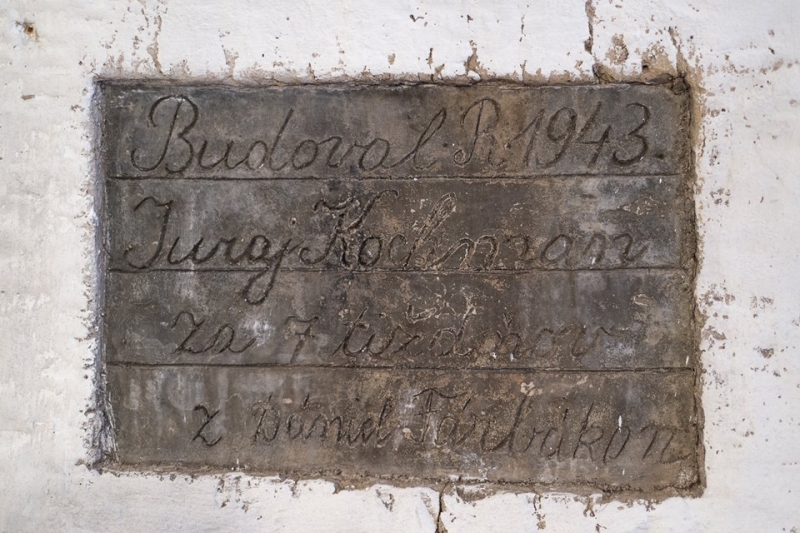 Budoval R. 1943.
Juraj Kochman
za 7 tižd ňov
z Dániel Fárbákon